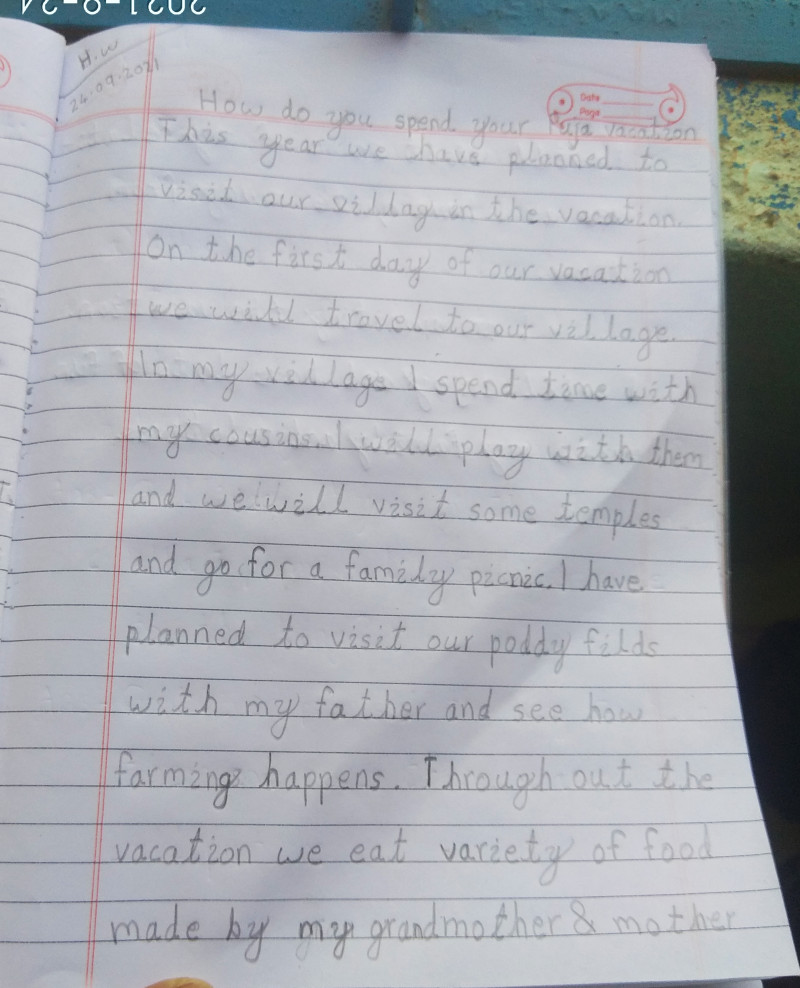 H.W
24.09.2021
Date
Page
How do you spend your Puja vacation
This year we have planned to
visit our villag in the vacation.
On the first day of our vacation
we will travel to our village.
In my village I spend time with
my cousins. I will play with them
and we will visit some temples
and go for a family picnic. I have
planned to visit our poddy filds
with my father and see how
farming happens. Through out the
vacation we eat variety of food
made by my grandmother & mother